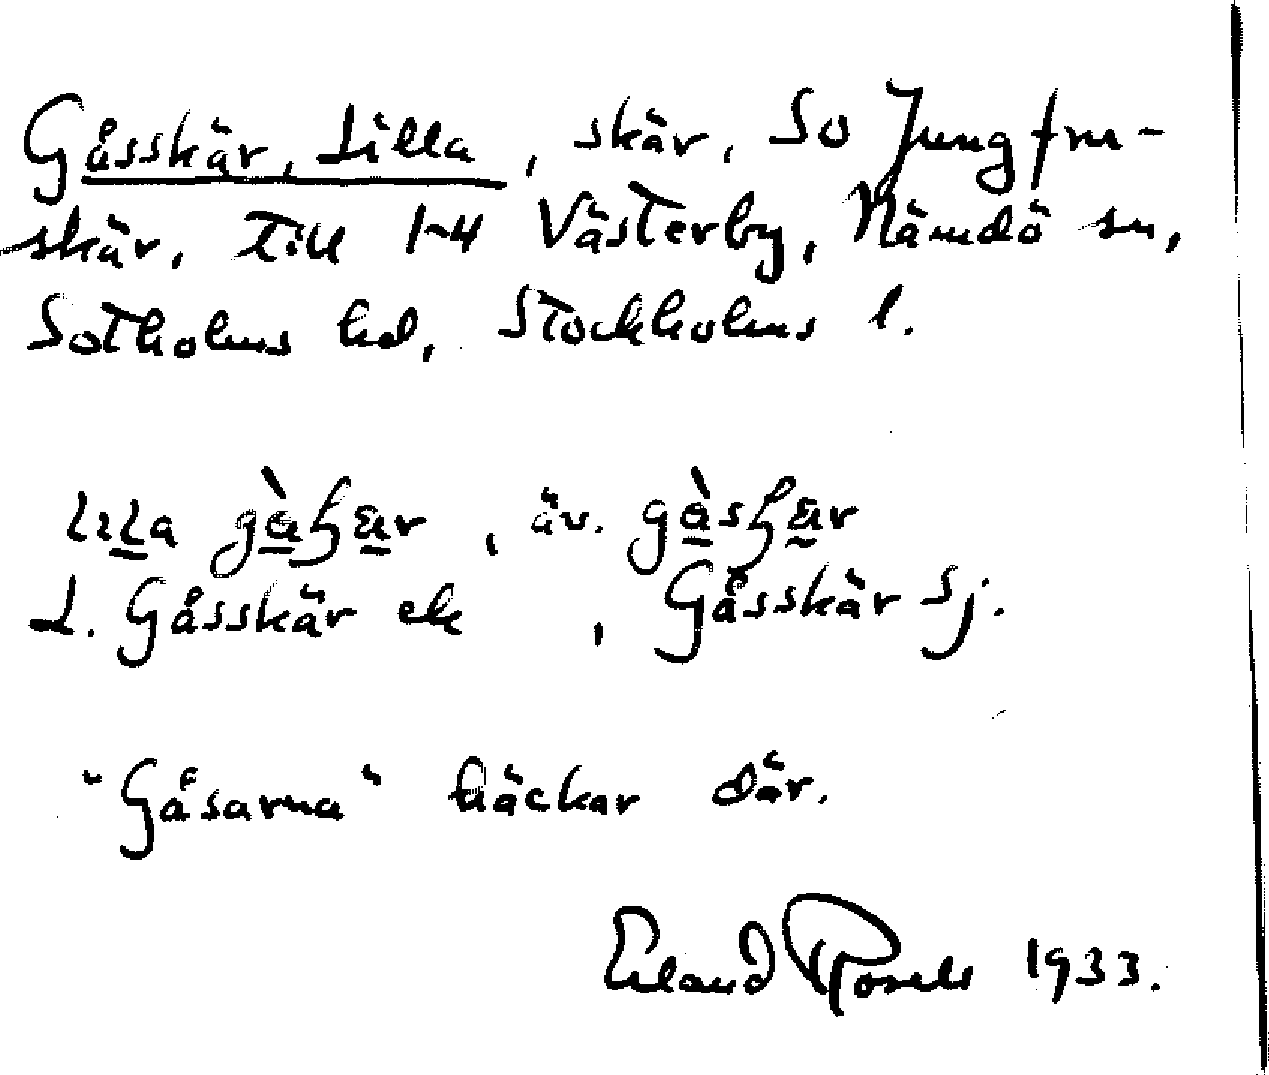 Gåsskär, Lilla, skär, So Jungfru-
skär, till 1-4 Västerby, Nämdö sn,
Sotholms hd, Stockholms l.
, äv.
L. Gåsskär ek , Gåsskär sj.
"Gåsarna" häckar där.
Erland Rosell 1933.